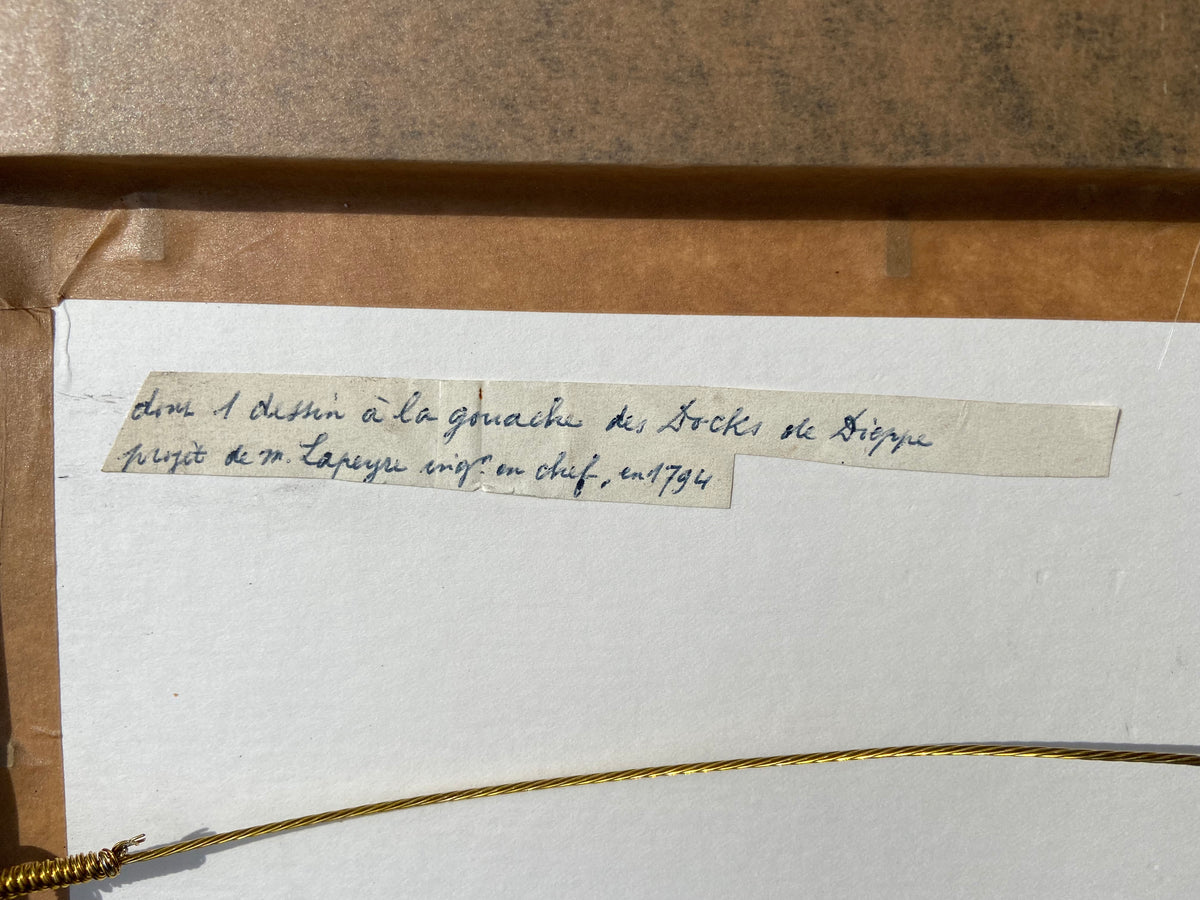 dont 1 dessin à la gouache des Docks de Dieppe
projet de m. Lapeyre ingr en chef, en 1794